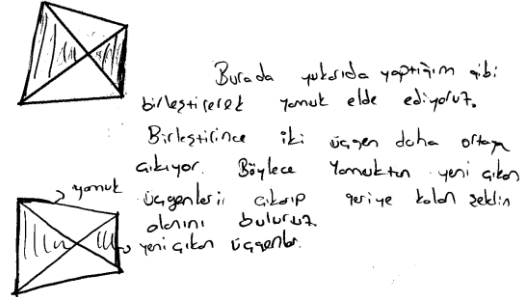 Burada yukarıda yaptığım gibi
birleştirerek yamuk elde ediyoruz.
Birleştirince iki üçgen daha ortaya
çıkıyor. Böylece Yamuktan yeni çıkan
yamuk
üçgenleri çıkarıp geriye kalan şeklin
alanını buluruz.
yeni çıkan üçgenler.